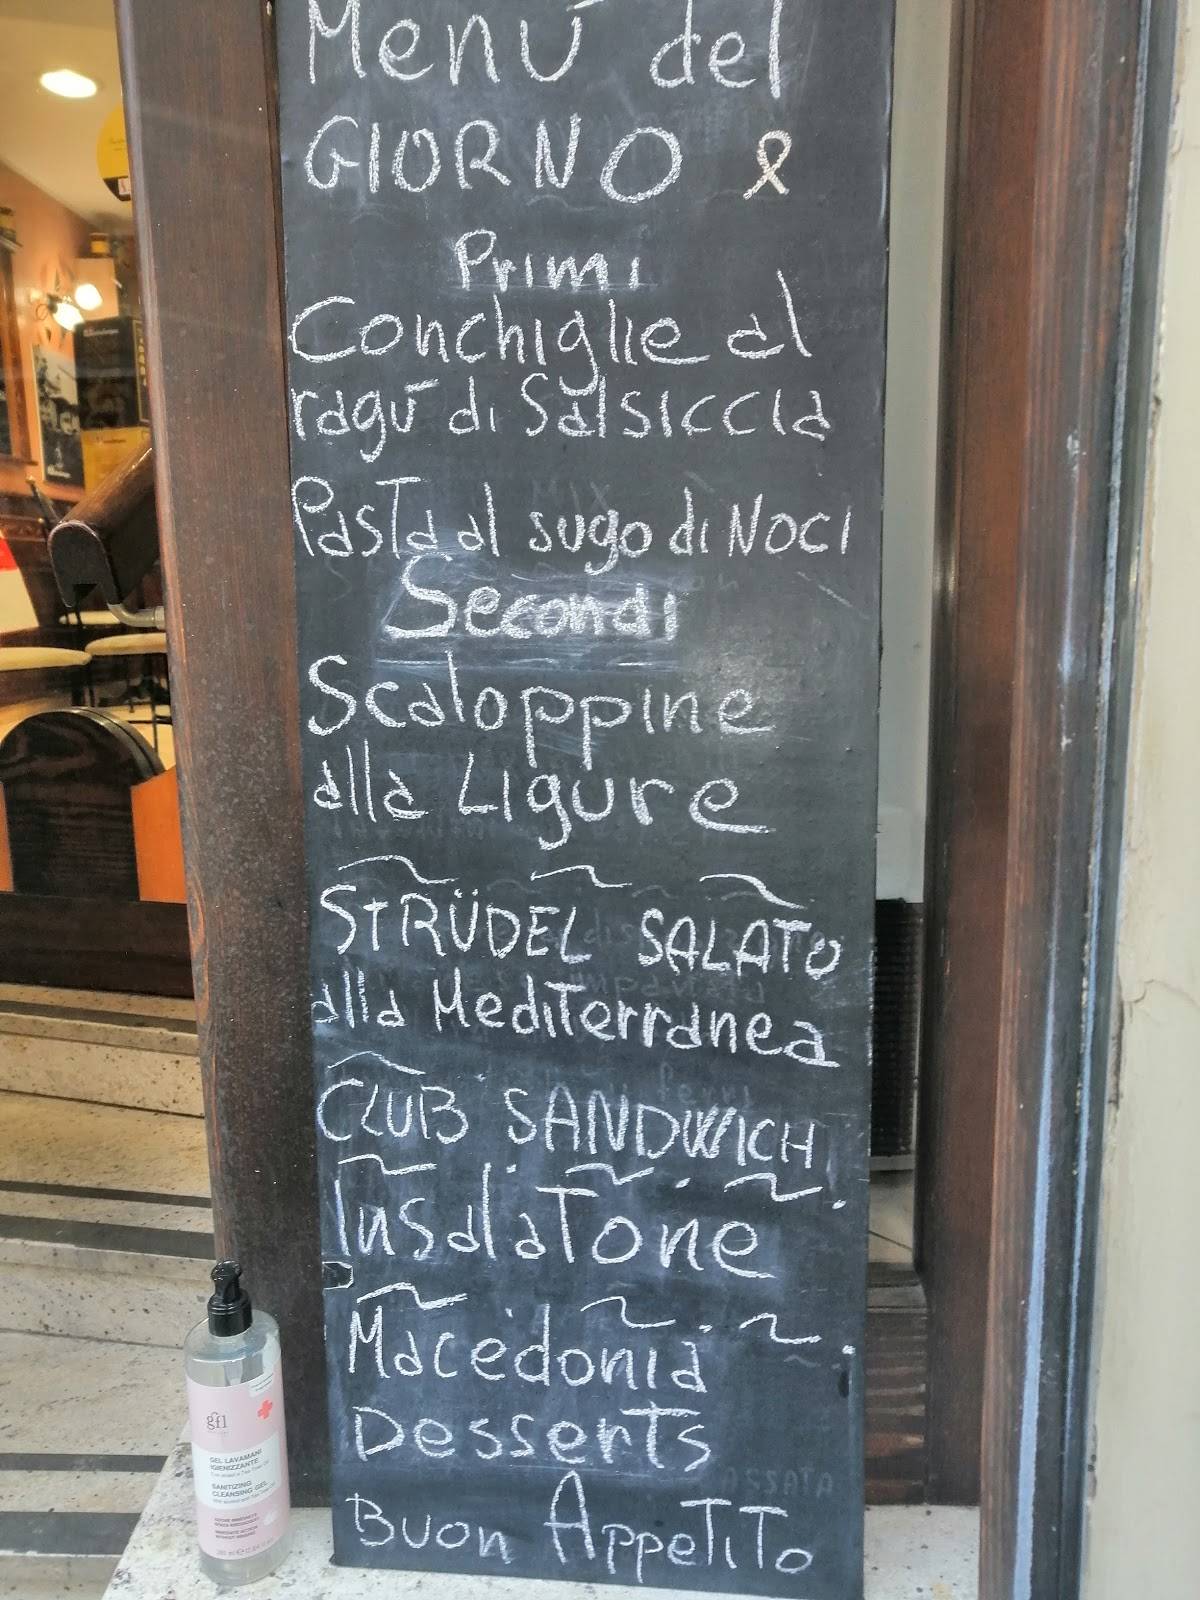 Menú del
GIORNO
Primi
Conchiglie al
ragú di Salsiccia
Pasta al sugo di NOCI
Secondi
Scaloppine
alla Ligure
STRÜDEL SALATO
alla Mediterranea
CLUB SANDWICH
InsalaTone
Macedonia
Desserts
Buon AppeTiTo
gfl
GEL LAVAMANI
IGIENIZZANTE
SANITIZING
CLEANSING GEL